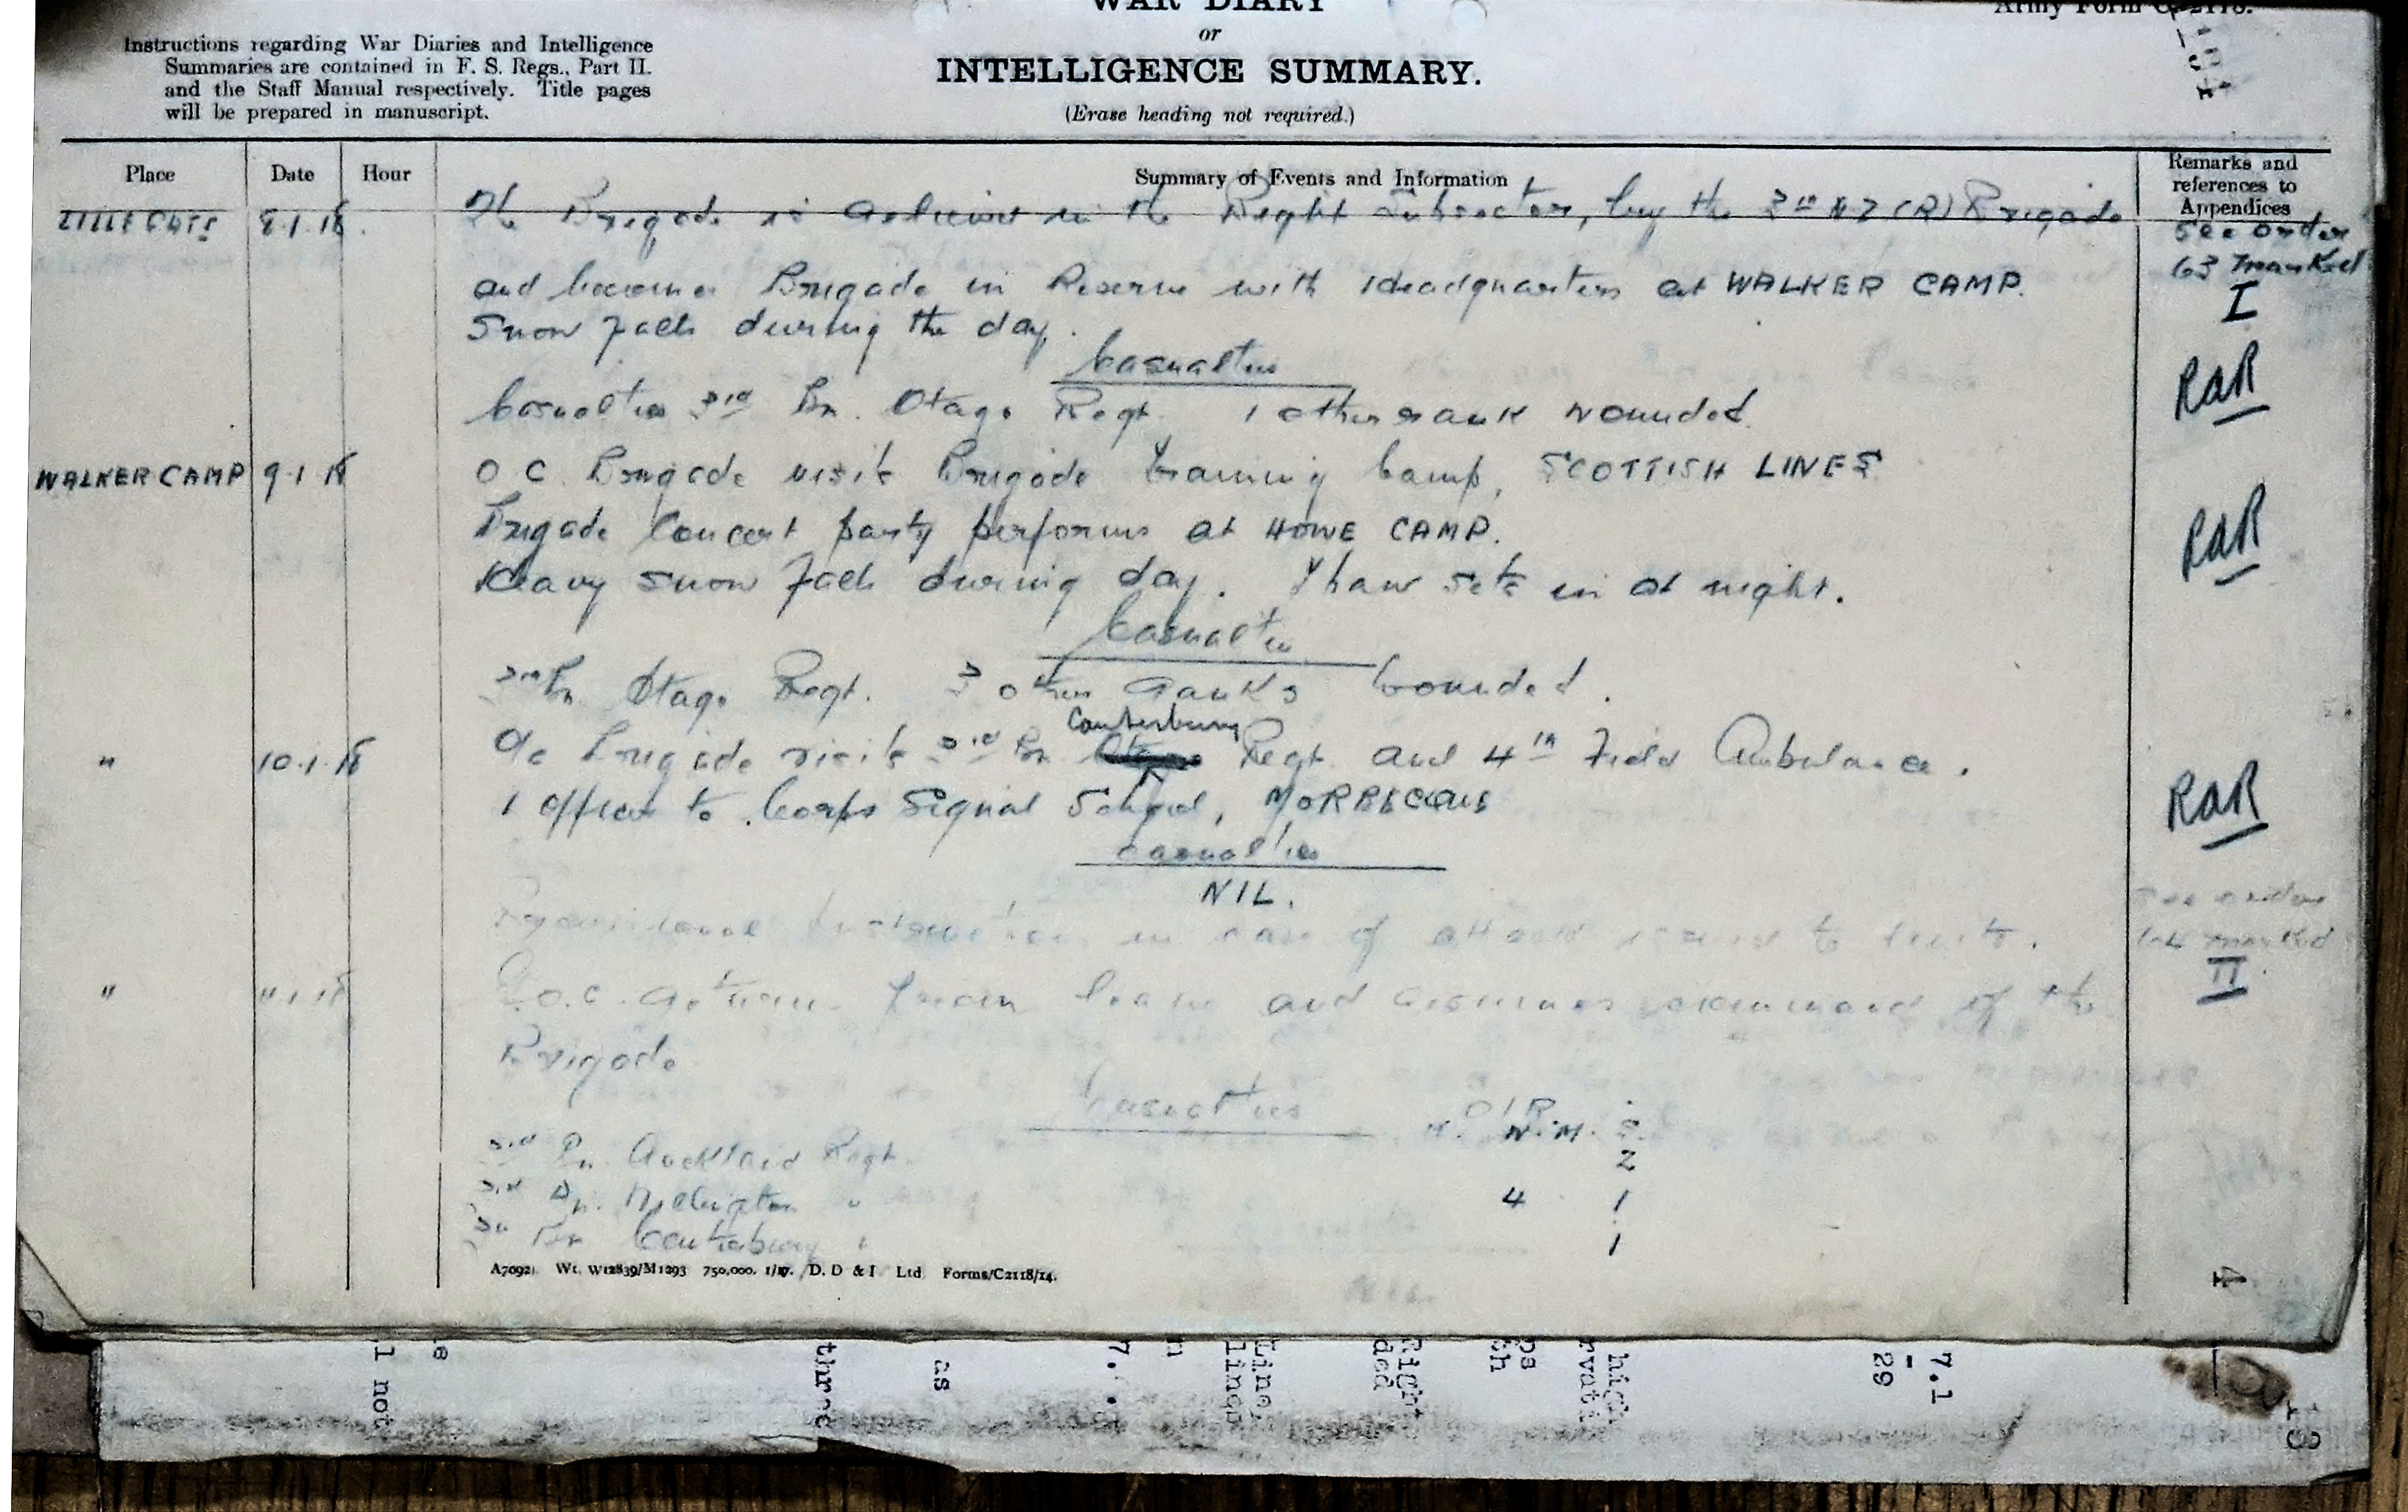 WAR DIARY
or
INTELLIGENCE SUMMARY.
(Erase heading not required.)
Army Form C. 2118.
Instructions regarding War Diaries and Intelligence
Summaries are contained in F. S. Regs., Part II.
and the Staff Manual respectively. Title pages
will be prepared in manuscript.
Place Date Hour Summary of Events and Information Remarks and references to Appendices
8.1.18. The Brigade is relieved in the Right Subsector, by the 3rd NZ (R) Brigade See order
and becomes Brigade in Reserve with Headquarters at WALKER CAMP. 63 marked
I
Snow falls during the day.
Casualties RaR
Casualties 3rd Bn. Otago Regt. 1 other rank wounded.
WALKER CAMP 9.1.18 O C Brigade visits Brigade Training Camp, SCOTTISH LINES
Brigade Concert party performs at HOWE CAMP. RaR
Heavy snow falls during day. Thaw sets in at night.
Casualties
3rd Bn. Otago Regt. 3 other ranks wounded.
Canterbury
" 10.1.18 O/c Brigade visits 3rd Bn Regt. and 4th Field Ambulance.
1 officer to Corps Signal School, MORBECQUE RaR
Casualties
NIL.
Instructions in case of attack issued to units. See order
64 marked
II
" 11.1.18 G.O.C. returns from leave and assumes command of the
Brigade
Casualties O/R
K. W. M. S.
3rd Bn. Auckland Regt. 2
3rd Bn. Wellington " 4 1
3rd Bn Canterbury " 1
A7092). Wt. W12839/M1293 750,000. 1/17. D. D & I Ltd Forms/C2118/14.
4
l not
as
7.
Line,
lines
Right
7.1
29